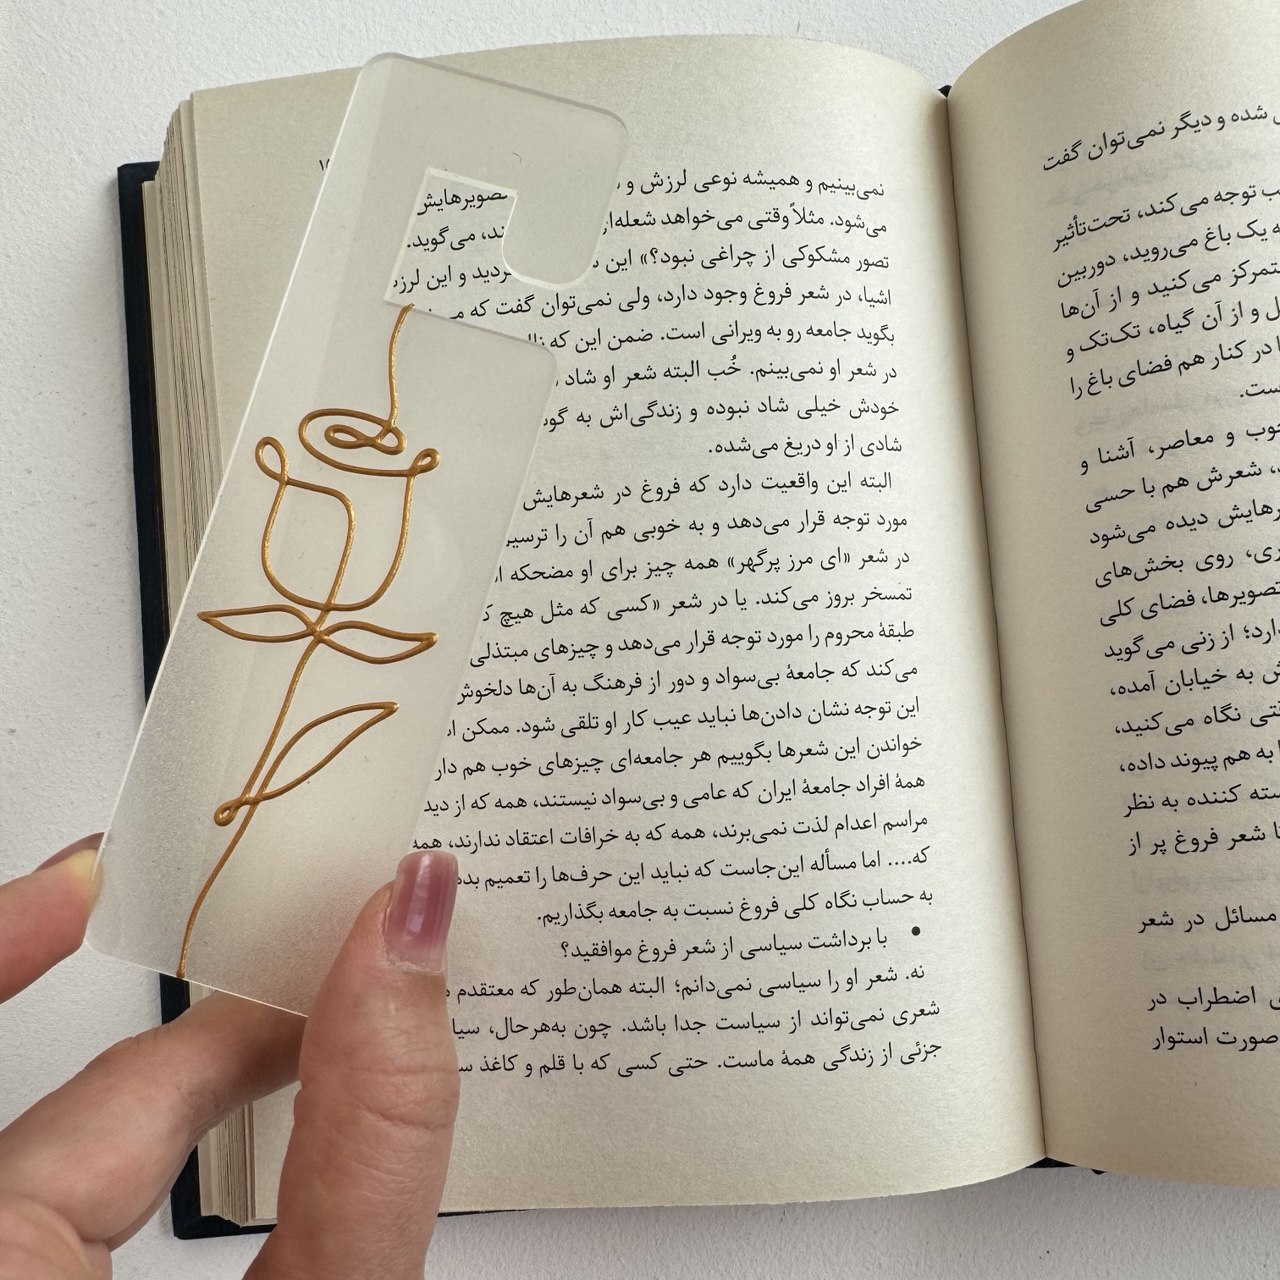 نمی‌بینیم و همیشه نوعی لرزش و تصویرهایش
می‌شود. مثلاً وقتی می‌خواهد شعله‌ای می‌گوید.
تصور مشکوکی از چراغی نبود؟» این و این
اشیا، در شعر فروغ وجود دارد، ولی نمی‌توان گفت که
بگوید جامعه رو به ویرانی است. ضمن این که
در شعر او نمی‌بینم. خُب البته شعر او شاد
خودش خیلی شاد نبوده و زندگی‌اش به
شادی از او دریغ می‌شده.
البته این واقعیت دارد که فروغ در شعرهایش
مورد توجه قرار می‌دهد و به خوبی هم آن را
در شعر «ای مرز پرگهر» همه چیز برای او مضحکه
تمسخر بروز می‌کند. یا در شعر «کسی که مثل هیچ
طبقهٔ محروم را مورد توجه قرار می‌دهد و چیزهای مبتذلی
می‌کند که جامعهٔ بی‌سواد و دور از فرهنگ به آن‌ها دلخوش
این توجه نشان دادن‌ها نباید عیب کار او تلقی شود. ممکن
خواندن این شعرها بگوییم هر جامعه‌ای چیزهای خوب هم
همهٔ افراد جامعهٔ ایران که عامی و بی‌سواد نیستند، همه که از دید
مراسم اعدام لذت نمی‌برند، همه که به خرافات اعتقاد ندارند، همه
که.... اما مسأله این‌جاست که نباید این حرف‌ها را تعمیم
به حساب نگاه کلی فروغ نسبت به جامعه بگذاریم.
• با برداشت سیاسی از شعر فروغ موافقید؟
نه. شعر او را سیاسی نمی‌دانم؛ البته همان‌طور که معتقدم
شعری نمی‌تواند از سیاست جدا باشد. چون به‌هرحال،
جزئی از زندگی همهٔ ماست. حتی کسی که با قلم و کاغذ
شده و دیگر نمی‌توان گفت
توجه می‌کند، تحت‌تأثیر
یک باغ می‌روید، دوربین
متمرکز می‌کنید و از آن‌ها
و از آن گیاه، تک‌تک و
در کنار هم فضای باغ را
است.
خوب و معاصر، آشنا و
شعرش هم با حسی
دیده می‌شود
روی بخش‌های
تصویرها، فضای کلی
دارد؛ از زنی می‌گوید
به خیابان آمده،
نگاه می‌کنید،
به هم پیوند داده،
کننده به نظر
شعر فروغ پر از
مسائل در شعر
اضطراب در
صورت استوار